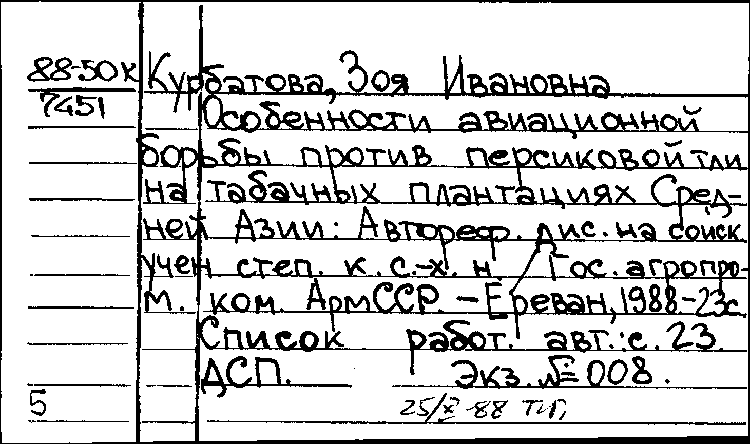 88-50к Курбатова, Зоя Ивановна
7451 Особенности авиационной
борьбы против персиковой тли
на табачных плантациях Сред-
ней Азии: Автореф. дис. на соиск.
учен степ. к. с.-х. н. / Гос. агропро-
м. ком. АрмССР. - Ереван, 1988-23с.
Список работ. авт.: с. 23.
ДСП. Экз. № 008.
5 25/X-88